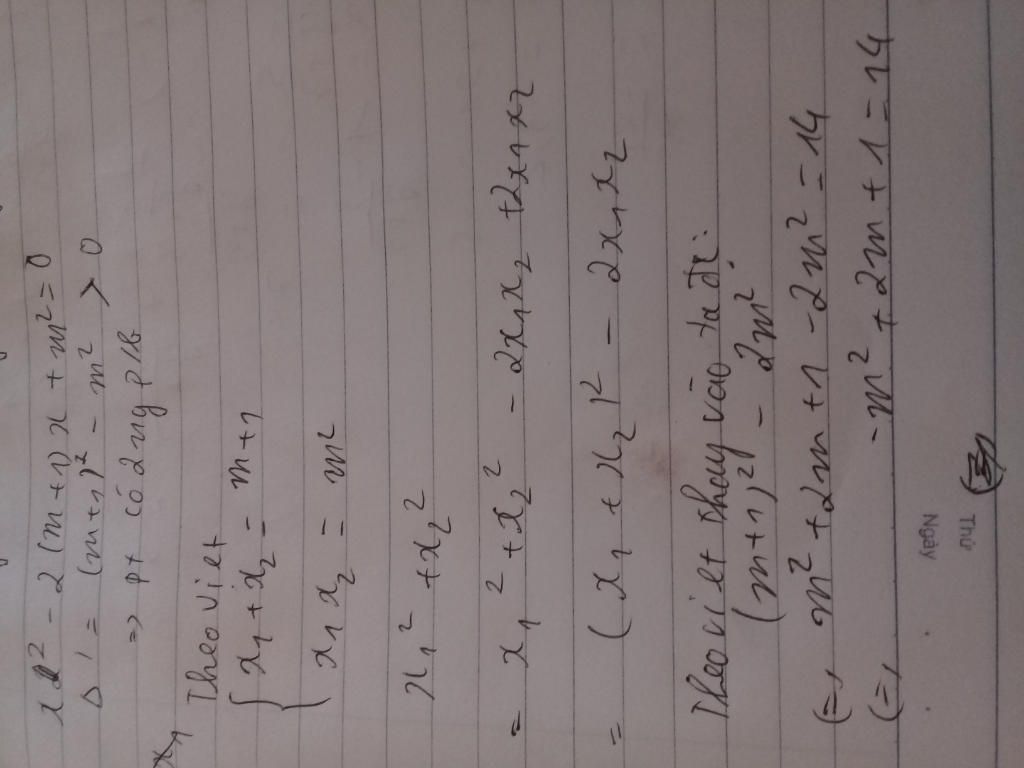 x² - 2(m+1)x + m² = 0
Δ' = (m+1)² - m² > 0
=> pt có 2 ng p/b
x₁
Theo viet
{ x₁ + x₂ = m+1
{ x₁ x₂ = m²
x₁² + x₂²
= x₁² + x₂² - 2x₁x₂ + 2x₁x₂
= (x₁ + x₂)² - 2x₁x₂
Theo viet thay vào ta đc:
(m+1)² - 2m²
(=) m² + 2m + 1 - 2m² = 14
(=) -m² + 2m + 1 = 14
Thứ
Ngày